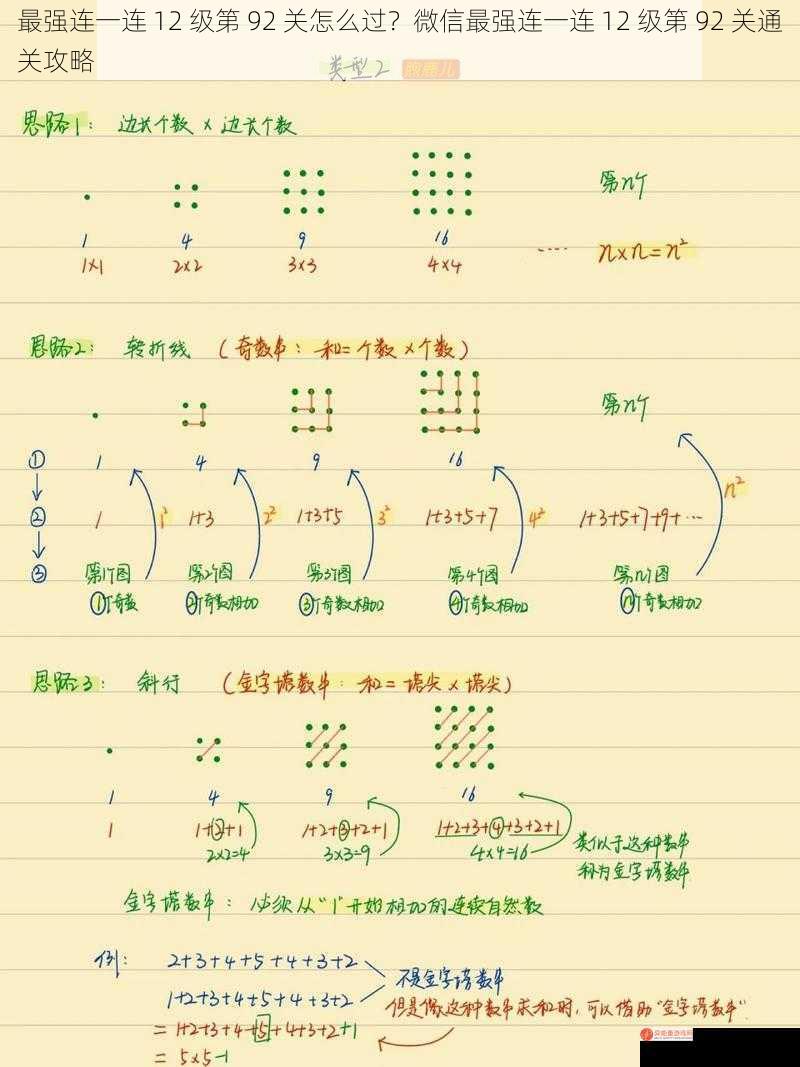 最强连一连 12 级第 92 关怎么过？微信最强连一连 12 级第 92 关通
关攻略
类型2
思路1： 边长个数 × 边长个数
第n个
1 4 9 16
1×1 2×2 3×3 4×4 ···· n×n=n²
思路2： 转折线 (奇数串：和=个数×个数)
第n个
① 1 4 9 16
② 1 1² 1+3 2² 1+3+5 3² 1+3+5+7 4² 1+3+5+7+9+··· n²
③ 第1个图 第2个图 第3个图 第4个图 第n个图
①个奇数 ②个奇数相加 ③个奇数相加 ④个奇数相加 ⓝ个奇数相加
思路3： 斜行 (金字塔数串：和=塔尖×塔尖)
1 4 9 16
1 1+②+1 1+2+③+2+1 1+2+3+④+3+2+1
2×2=4 3×3=9 4×4=16
类似于这种数串
称为金字塔数串
金字塔数串：必须从"1"开始相加的连续自然数
例： 2+3+4+5+4+3+2
不是金字塔数串
1+2+3+4+5+4+3+2
但是像这种数串求和时，可以借助"金字塔数串".
=1+2+3+4+5+4+3+2+1
=5×5-1